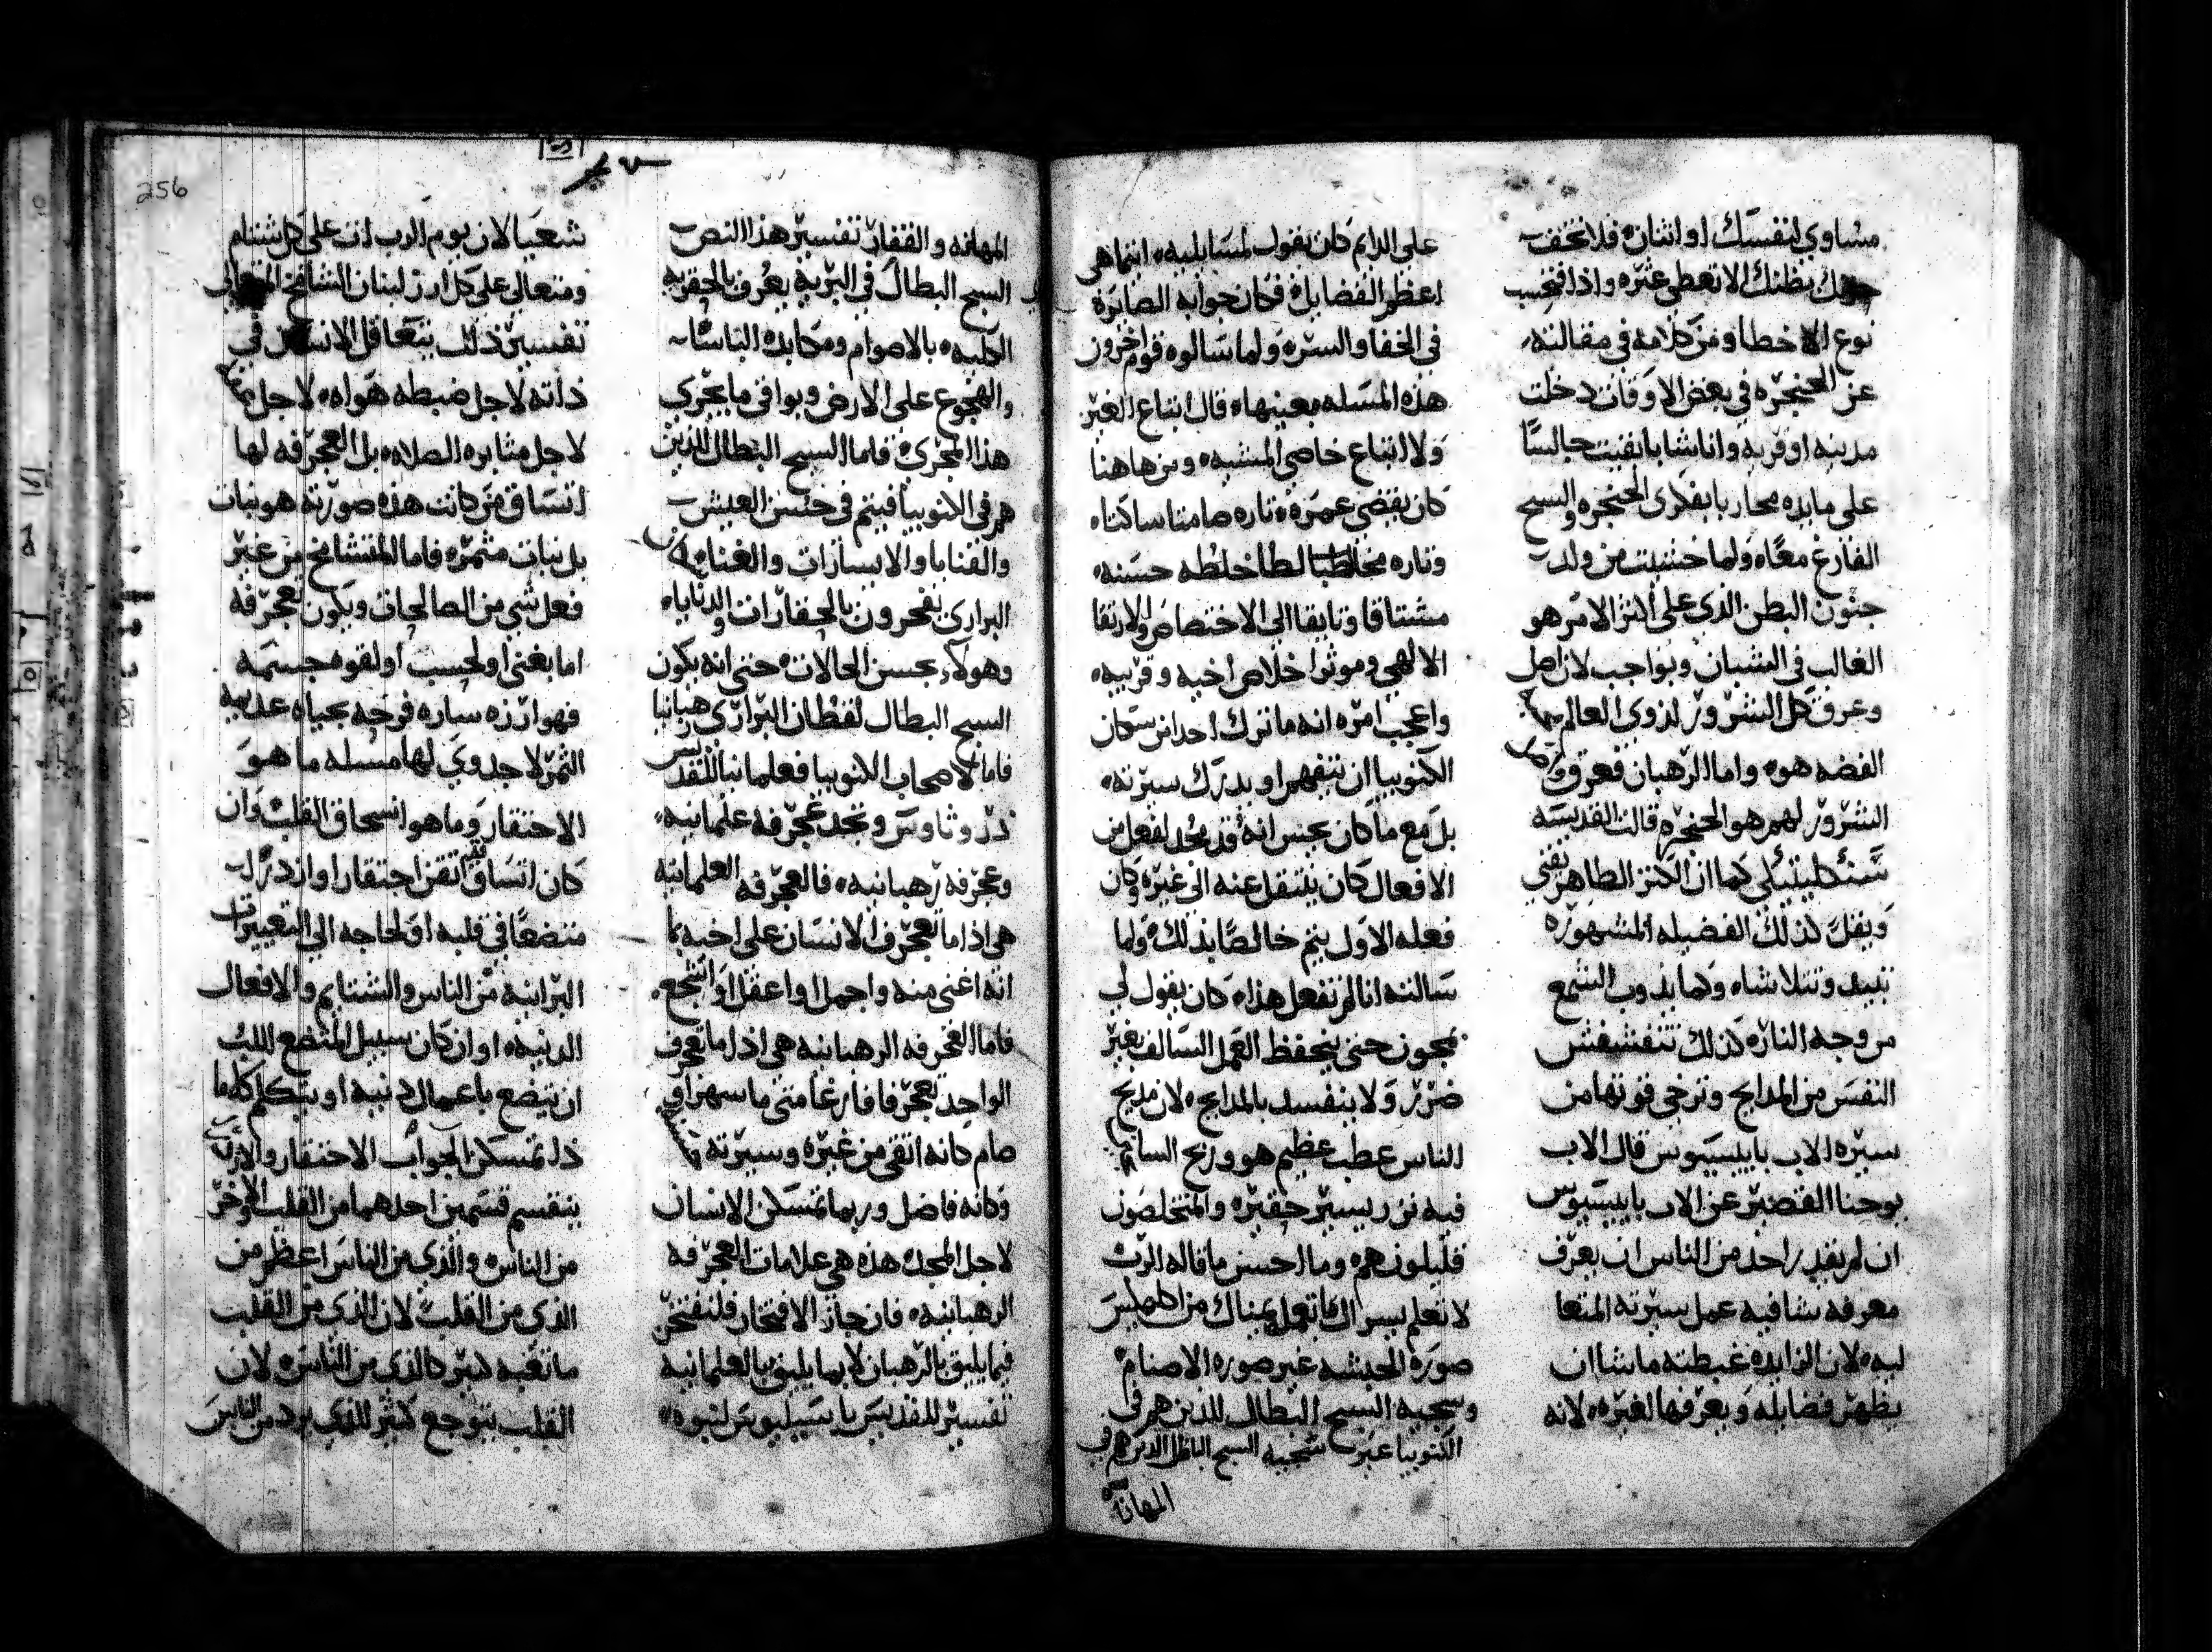 مساوي لنفسك او اثنان فلا تخف
بظنك الا تعطي عثره واذا فتحسب
نوع الاخطا ومن كلامه في مقالته
عن الحنجره في بعض الاوقات دخلت
مدينه او قريه وانا شابا بقيت جالسًا
على مايده محاربا بفكرى الحنجره والسبح
الفارغ معًا ولما خشيت من ولد
جنون البطن الذي على اكثر الامر هو
الغالب في الشبان وبواجب لان اصل
وعرق كل الشرور لذوي العالم
الفضه هو واما الرهبان فعرق
الشرور لهم هو الحنجره قالت القديسه
سنكليتيكي كما ان الكنز الظاهر يفني
ويقل كذلك الفضيله المشهوره
تبيد وتتلاشاه وكما يذوب الشمع
من وجه النار كذلك تتفشفش
النفس من المدايح وترخي قوتها من
سيره الاب بابيسيوس قال الاب
يوحنا القصير عن الاب بابيسيوس
ان لم يقدر احد من الناس ان يعرف
معرفه شافيه عمل سيرته المتعا
ليه لان الزايده غبطته ما شا ان
يظهر فضايله ويعرفها لغيره لانه
على الدايم كان يقول لمسايليه ايتما هي
اعظم الفضايل فكان جوابه الصايره
في الخفا والستره ولما سالوه قوم اخرون
هذه المسله بعينها قال اتباع الغير
ولا اتباع خاصي المشيه ومن هاهنا
كان يقضي عمره تاره صامتا ساكتا
وتاره مخاطبا لطا خلطه حسنه
مشتاقا وتايقا الى الاختصاص والارتقا
الالهي وموثرا خلاص اخيه وقريبه
واعجب امره انه ما ترك احدا من سكان
الكنوبيا ان يتفهم او يدرك سيرته
بل مع ما كان يحس انه قد مُجد لفعل من
الافعال كان ينتقل عنه الى غيره وكان
فعله الاول يتم خالصًا بذلك ولما
سالته انا لم تفعل هذا كان يقول لي
يجون حتى يحفظ العمل السالف بغير
ضرر ولا ينفسد بالمدايح لان مديح
الناس عطب عظيم هو وربح
فيه نزر يسير حقيره والمتخلصون
قليلون هم وما احسن ما قاله الرب
لا تعلم يسراك ما تعمل يمناك من
صوره الحبشه غير صوره الاصنام
وسجيه السبح البطال للذين هم في
الكنوبيا غير سجيه السبح الباطل الذين هم في
المهانه
256
المهانه والقفار تفسير هذا النص
السبح البطال في البريه يعرف بالحقريه
الكليه بالاصوام ومكابده الناسات
والهجوع على الارض ويوافي ما يجري
هذا المجرى فاما السبح البطال الذين
هم في الكنوبيا فيتم في حسن العيش
والقنايا والايسارات والغنا
البراري يفخرون بالحقارات والدنايا
وهولاء بحسن الحالات حتى انه يكون
السبح البطال لقطان البراري رهبانيا
فاما لاصحاب الكنوبيا فعلمانيا للقديس
ذرواثاوس ونجد عجرفه علمانيه
وعجرفه رهبانيه فالعجرفه العلمانيه
هي اذا ما تعجرف الانسان على اخيه بما
انه اغنى منه واجمل او اعقل او اشجع
فاما العجرفه الرهبانيه هي اذا ما تعجرف
الواحد تعجرفا فارغا متى ما سهر او
صام كانه اتقى من غيره وسيرته
وكانه فاضل وربما تمسكن الانسان
لاجل المجد هذه هي علامات العجرفه
الرهبانيه فان جاز الافتخار فلنفتخر
فيما يليق بالرهبان لا بما يليق بالعلمانيه
تفسير للقديس باسيليوس لنبوه
شعيا لان يوم الرب ات على كل شتام
ومتعالي على كل ارز لبنان الشامخ المتعالي
تفسير ذلك يتعاقل الانسان في
ذاته لاجل ضبطه هواه لاجل
لاجل مثابره الصلاه بل العجرفه لها
اتساق من كانت هذه صورته هو نبات
بل نبات مثمره فاما المتشامخ من غير
فعل شي من الصالحات ويكون تعجرفه
اما بغنى او لحسب او لقوه جسمه
فهو ارزه ساره فرحه بحياه عديمه
الثمر لا جدوي لها مسله ما هو
الاحتقار وما هو انسحاق القلب وان
كان اتساق اتقن احتقار او ازدرا
متضعًا في قلبه او لحاجه الى التعييرات
البرانيه من الناس والشتايم والافعال
الدنيه او ان كان سبيل المتضع اللب
ان يتضع باعمال دنيه او يتكلم كلاما
ذا تمسكن الجواب الاحتقار والازدرا
ينقسم قسمين احدهما من القلب والاخر
من الناس والذي من الناس اعظم من
الذي من القلب لان الذي من القلب
ما تعبه كبير كالذي من الناس لان
القلب يتوجع كثير للذي يرد من الناس